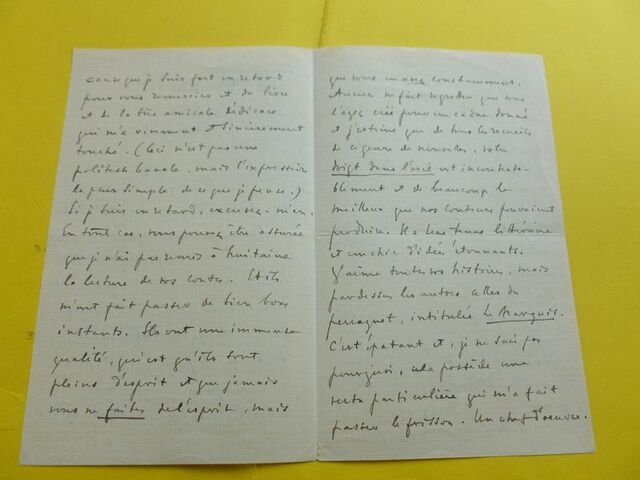 cause que je suis fort en retard
pour vous remercier et du livre
et de la très amicale dédicace
qui m'a vivement et sincèrement
touché. (Ceci n'est pas une
politesse banale, mais l'expression
la plus simple de ce que je pense.)
Si je suis en retard, excusez-m'en.
En tout cas, vous pouvez être assurée
que je n'ai pas remis à huitaine
la lecture de vos contes. Et ils
m'ont fait passer de bien bons
instants. Ils ont une immense
qualité, qui est qu'ils sont
pleins d'esprit et que jamais
vous ne faites de l'esprit, mais
que vous en avez constamment.
Aucun ne fait regretter que vous
l'ayez créé pour un cadre donné
et j'estime que de tous les recueils
de ce genre de nouvelles, votre
doigt dans l'œil est incontesta-
blement et de beaucoup le
meilleur que nos conteurs pouvaient
produire. Il a une tenue littéraire
et un chic d'idées étonnants.
J'aime toutes vos histoires, mais
par dessus les autres celle du
perroquet, intitulée Le Marquis.
C'est épatant et, je ne sais pas
pourquoi, cela possède une
vertu particulière qui m'a fait
passer le frisson. Un chef d'œuvre.